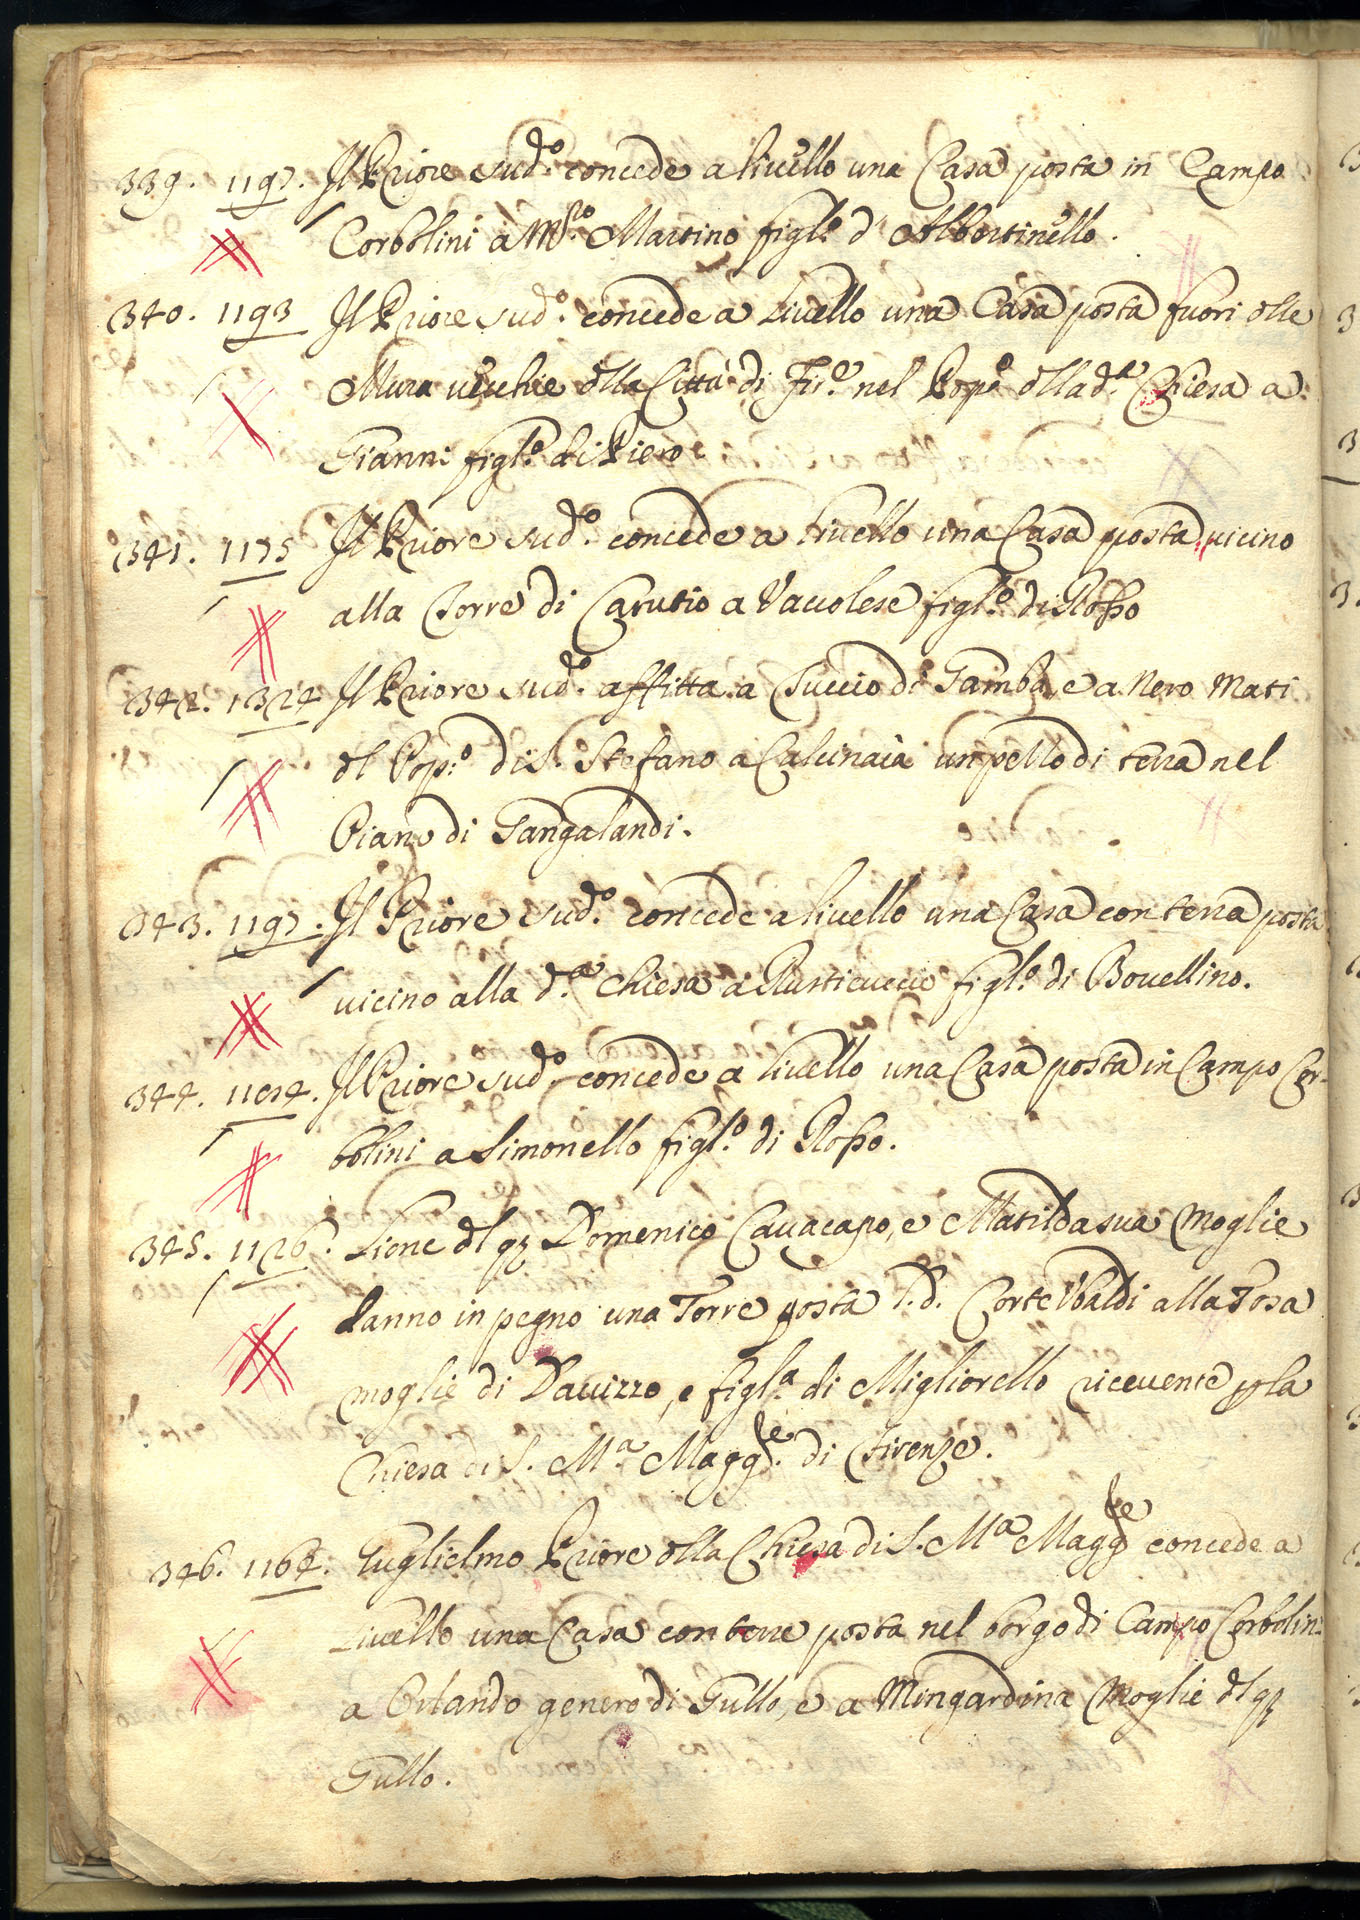 339. 1197. Il Priore sud.º concede a livello una Casa posta in Campo
Corbolini a M.ro Martino figl.º d' Albertinello.
340. 1193 Il Priore sud.º concede a Livello una Casa posta fuori dlle
Mura vecchie dlla Città di Fir.e nel Pop.º dlla d.a Chiesa a
Gianni figl.º di Piero
341. 1175 Il Priore sud.º concede a livello una Casa posta vicino
alla Torre di Carutio a Vavolese figl.º di Rosso
342. 1324 Il Priore sud.º affitta a Tuccio di Gamba, e a Nero Mati
dl Pop.º di S. Stefano a Calcinaia un pezzo di terra nel
Piano di Gangalandi.
343. 1197. Il Priore sud.º concede a livello una Casa con terra posta
vicino alla d.a Chiesa a Rusticuccio figl.º di Bovellino.
344. Il Priore sud.º concede a livello una Casa posta in Campo Cor-
bolini a Simonello figl.º di Rosso.
345. 1126. Lione dl q Domenico Cavacapo, e Matilda sua Moglie
danno in pegno una Torre posta i.d. Corte Vbaldi alla Tosa
moglie di Davizzo, e figl.a di Migliorello ricevente p la
Chiesa di S. M.a Magg.re di Firenze.
346. 1164. Guglielmo Priore dlla Chiesa di S. M.a Magg.re concede a
Livello una Casa con terre posta nel borgo di Campo Corbolin.
a Orlando genero di Gullo, e a Mingardina Moglie dl q
Gullo.